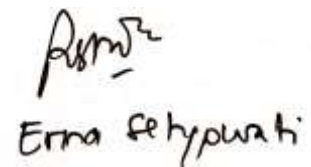 Erna Setyowati